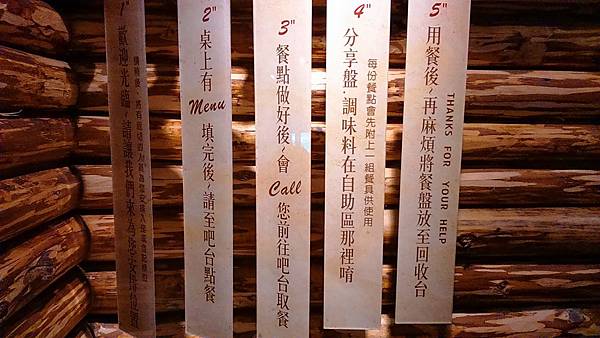 1"
歡迎光臨~請讓我們來為您安排位置
2"
桌上有
Menu
填完後~請至吧台點餐
3"
餐點做好後~會
Call
您前往吧台取餐
4"
分享盤．調味料在自助區那裡唷
每份餐點會先附上一組餐具供使用。
5"
用餐後~再麻煩將餐盤放至回收台
THANKS FOR YOUR HELP